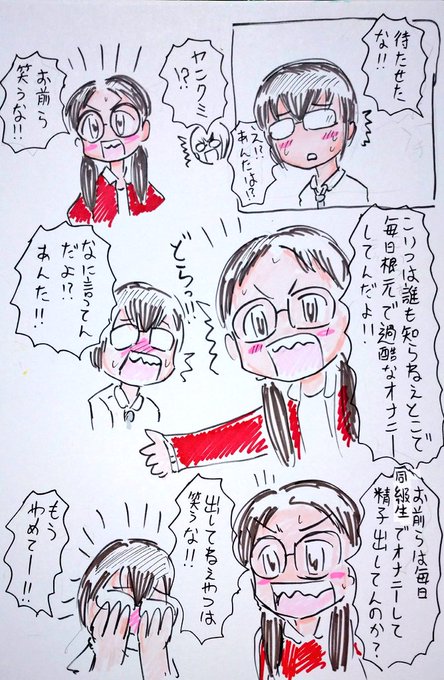 待たせた
な!!
え!?
あんたよ!?
ヤンクミ
!?
お前ら
笑うな!!
こいつは誰も知らねえとこで
毎日根元で過酷なオナニー
してんだよ!!
どらっ!!
なに言ってん
だよ!?
あんた!!
お前らは毎日
同級生でオナニーして
精子出してんのか?
出してねえやつは
笑うな!!
もう
やめてー!!